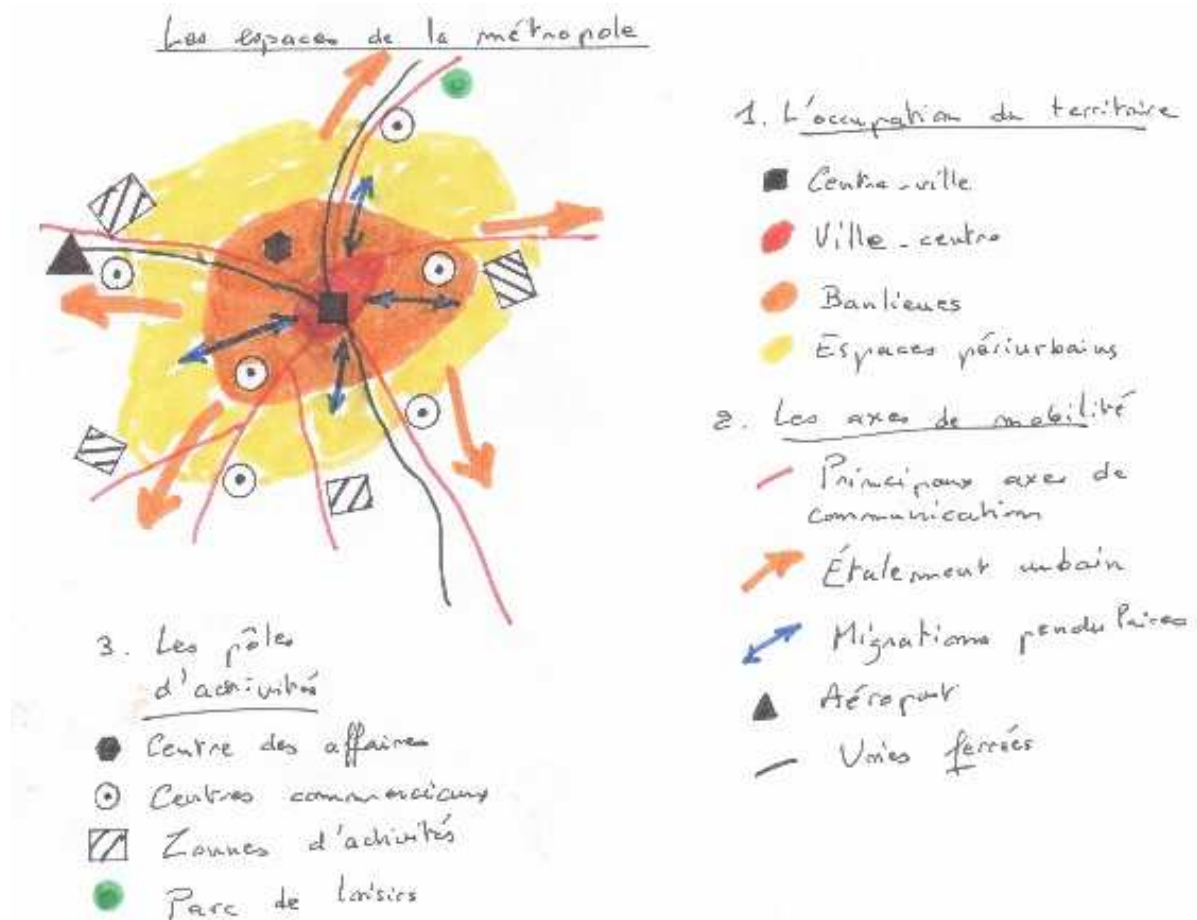 Les espaces de la métropole
1. L'occupation du territoire
Centre-ville
Ville-centre
Banlieues
Espaces périurbains
2. Les axes de mobilité
Principaux axes de
communication
Étalement urbain
Migrations pendulaires
Aéroport
Voies ferrées
3. Les pôles
d'activités
Centre des affaires
Centres commerciaux
Zonnes d'activités
Parc de loisirs